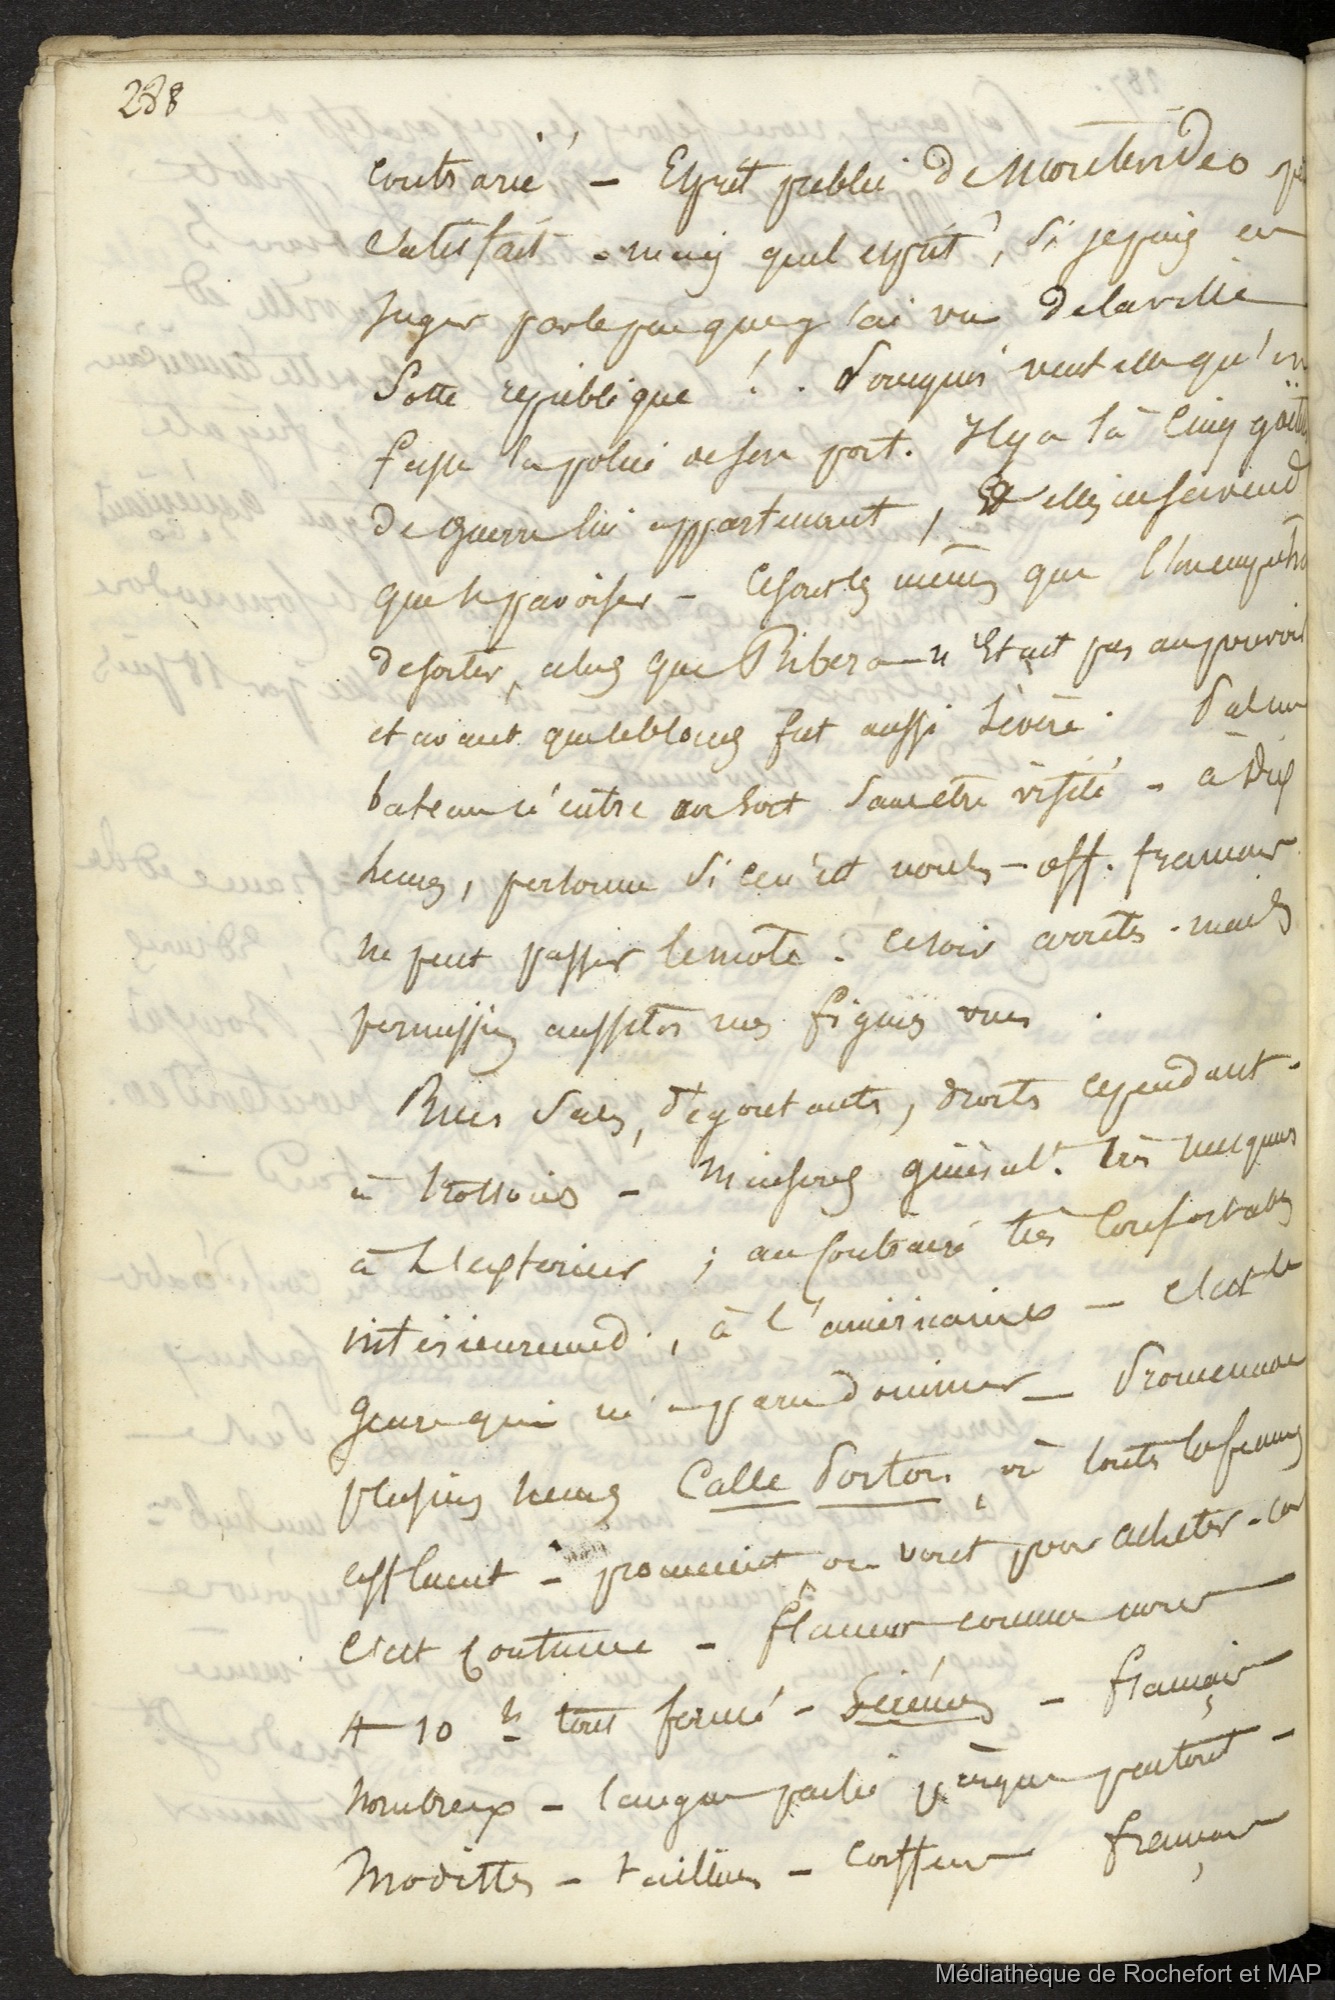 288
contrarié – Esprit public de Montevideo peu
satisfait – mais quel esprit, si je puis en
juger par le peu que j'ai vu de la ville
Sotte republique ! . Pourquoi veut elle qu'on
fasse la police de son port. Il y a là cinq goël
de guerre lui appartenant, Et elles ne servent
qu'à pavoiser – Ce sont les mêmes que l'on empêcha
de sortir, alors que Ribera n'Etait pas au pouvoir
et avant que le blocus fut aussi sévère. Pas un
bateau n'entre ou sort sans être visité – à dix
heures, personne si ce n'est nous – off. francais
ne peut passer le mole – Ce soir arrêtés – mais
permission aussitôt nos figures vues .
Rues sales, dégoutantes, droites cependant –
à trottoirs – Maisons général.t très mesquines
à l'extérieur ; au contraire très confortables
intérieuremend, à l'américaines – C'est le
genre qui m'a paru dominer – Promenade
plusieurs heures Calle Porton, où toutes les femmes
affluent – promenent, ou vont pour acheter – car
c'est coutume – flaner comme nous
A 10 h tout fermé – Sérénos – français
nombreux – langue parlée presque partout –
Modistes – tailleurs – coiffeurs français
Médiathèque de Rochefort et MAP